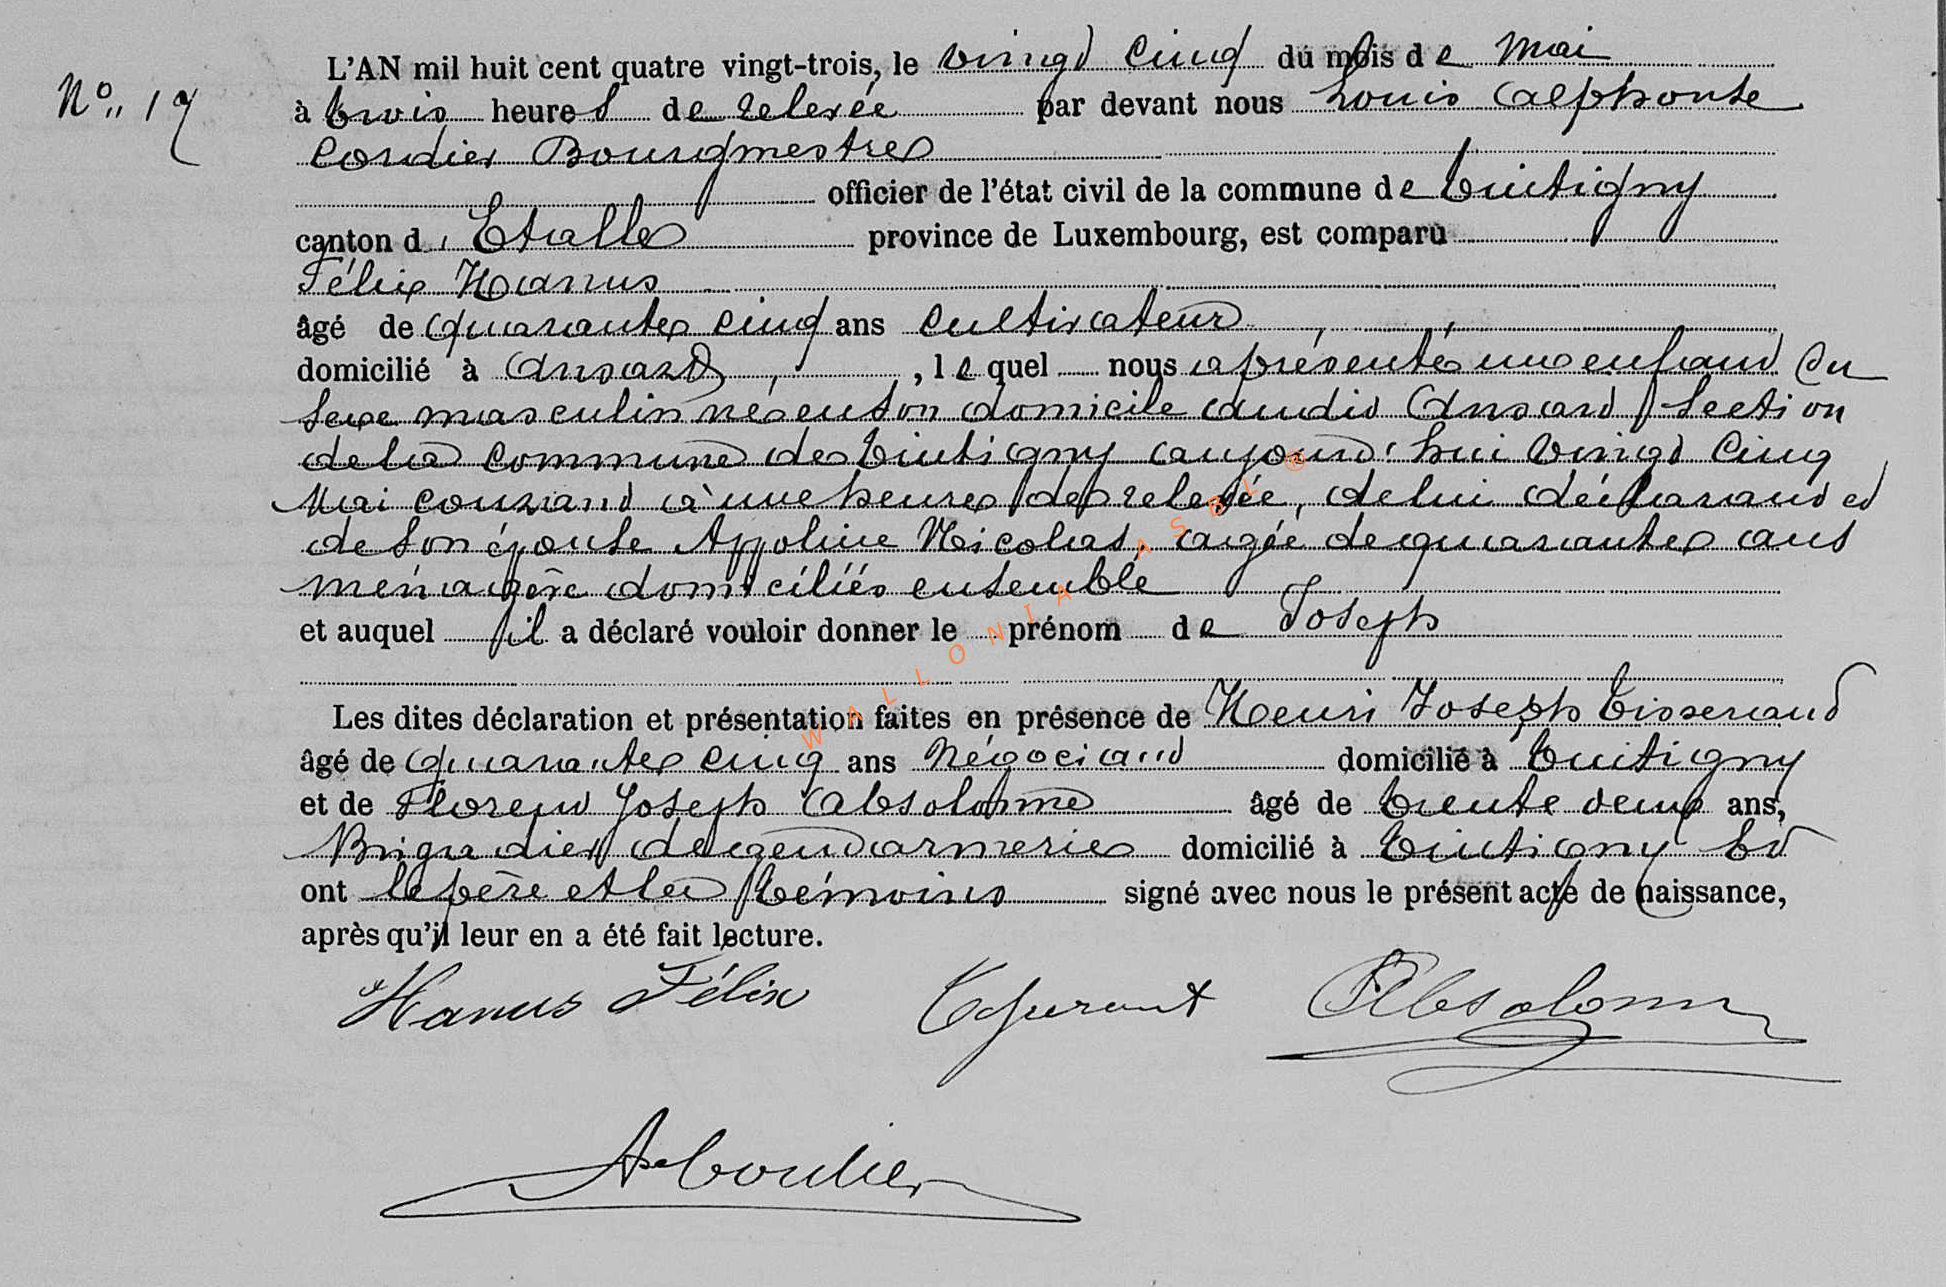 N° 19
L'AN mil huit cent quatre vingt-trois, le vingt cinq du mois de mai
à trois heures de relevée par devant nous Louis Alphonse
Cordier Bourgmestre
officier de l'état civil de la commune de Tintigny
canton d'Etalle province de Luxembourg, est comparu
Félix Hanus
âgé de quarante cinq ans cultivateur
domicilié à Ansart, lequel nous a présenté un enfant du
sexe masculin né en son domicile audit Ansart section
de la commune de Tintigny aujourd'hui vingt cinq
Mai courant à une heure de relevée, de lui déclarant et
de son épouse Appoline Nicolas, agée de quarante ans
ménagère domiciliés ensemble
et auquel il a déclaré vouloir donner le prénom de Joseph
Les dites déclaration et présentation faites en présence de Henri Joseph Tisserand
âgé de quarante cinq ans négociant domicilié à Tintigny
et de Florent Joseph Absolonne âgé de trente deux ans,
Brigadier de gendarmerie domicilié à Tintigny Et
ont le père et les témoins signé avec nous le présent acte de naissance,
après qu'il leur en a été fait lecture.
Hanus Félix Absolonne
A Cordier
WALLONIA ASBL ®